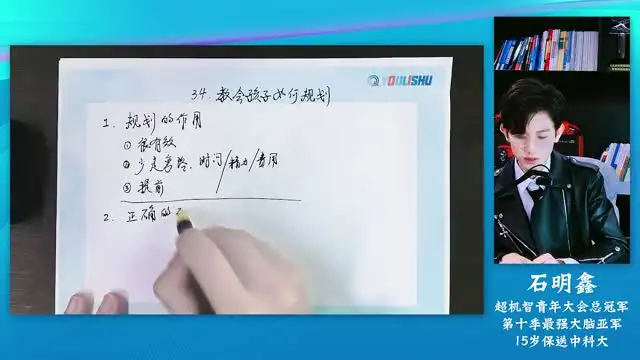 YOULISHU
34. 教会孩子如何规划
1. 规划的作用
① 很有效
② 少走弯路、时间/精力/费用
③ 提前
2. 正确的
石明鑫
超机智青年大会总冠军
第十季最强大脑亚军
15岁保送中科大